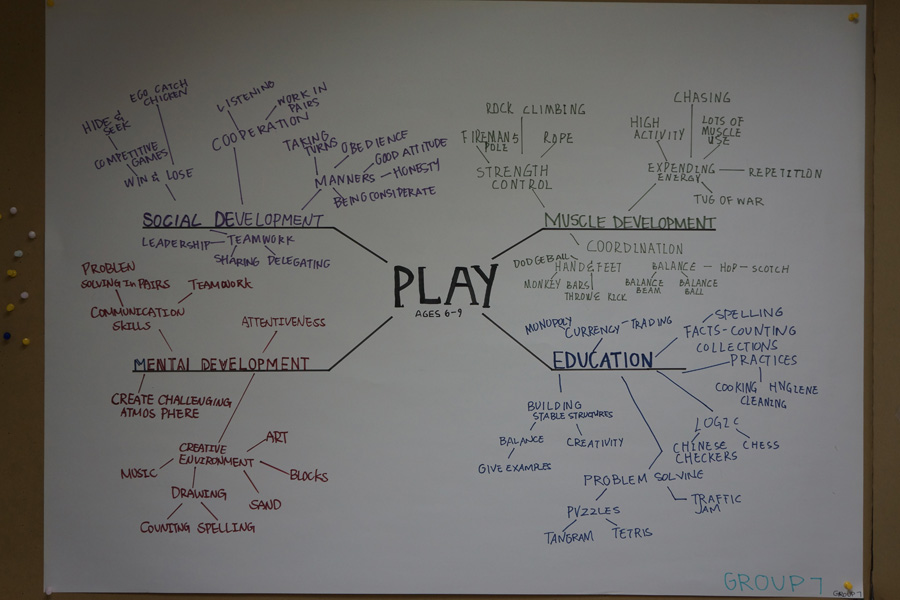 PLAY
AGES 6-9
SOCIAL DEVELOPMENT
EGG CATCH
CHICKEN
HIDE &
SEEK
COMPETITIVE
GAMES
WIN & LOSE
LISTENING
WORK IN
PAIRS
COOPERATION
TAKING
TURNS
OBEDIENCE
GOOD ATTITUDE
MANNERS
HONESTY
BEING CONSIDERATE
LEADERSHIP
TEAMWORK
SHARING
DELEGATING
MUSCLE DEVELOPMENT
ROCK CLIMBING
FIREMANS
POLE
ROPE
STRENGTH
CONTROL
CHASING
HIGH
ACTIVITY
LOTS OF
MUSCLE
USE
EXPENDING
ENERGY
REPETITION
TUG OF WAR
COORDINATION
DODGEBALL
HAND & FEET
MONKEY BARS
THROWS KICK
BALANCE
HOP-SCOTCH
BALANCE
BEAM
BALANCE
BALL
MENTAL DEVELOPMENT
PROBLEN
SOLVING IN PAIRS
TEAMWORK
COMMUNICATION
SKILLS
ATTENTIVENESS
CREATE CHALLENGING
ATMOS PHERE
CREATIVE
ENVIRONMENT
ART
MUSIC
BLOCKS
DRAWING
SAND
COUNITNG
SPELLING
EDUCATION
MONOPOLY
CURRENCY
TRADING
SPELLING
FACTS-COUNTING
COLLECTIONS
PRACTICES
COOKING
HYGIENE
CLEANING
BUILDING
STABLE STRUCTURES
BALANCE
CREATIVITY
GIVE EXAMPLES
LOGIC
CHINESE
CHECKERS
CHESS
PROBLEM SOLVING
TRAFFIC
JAM
PUZZLES
TANGRAM
TETRIS
GROUP 7
GROUP 7